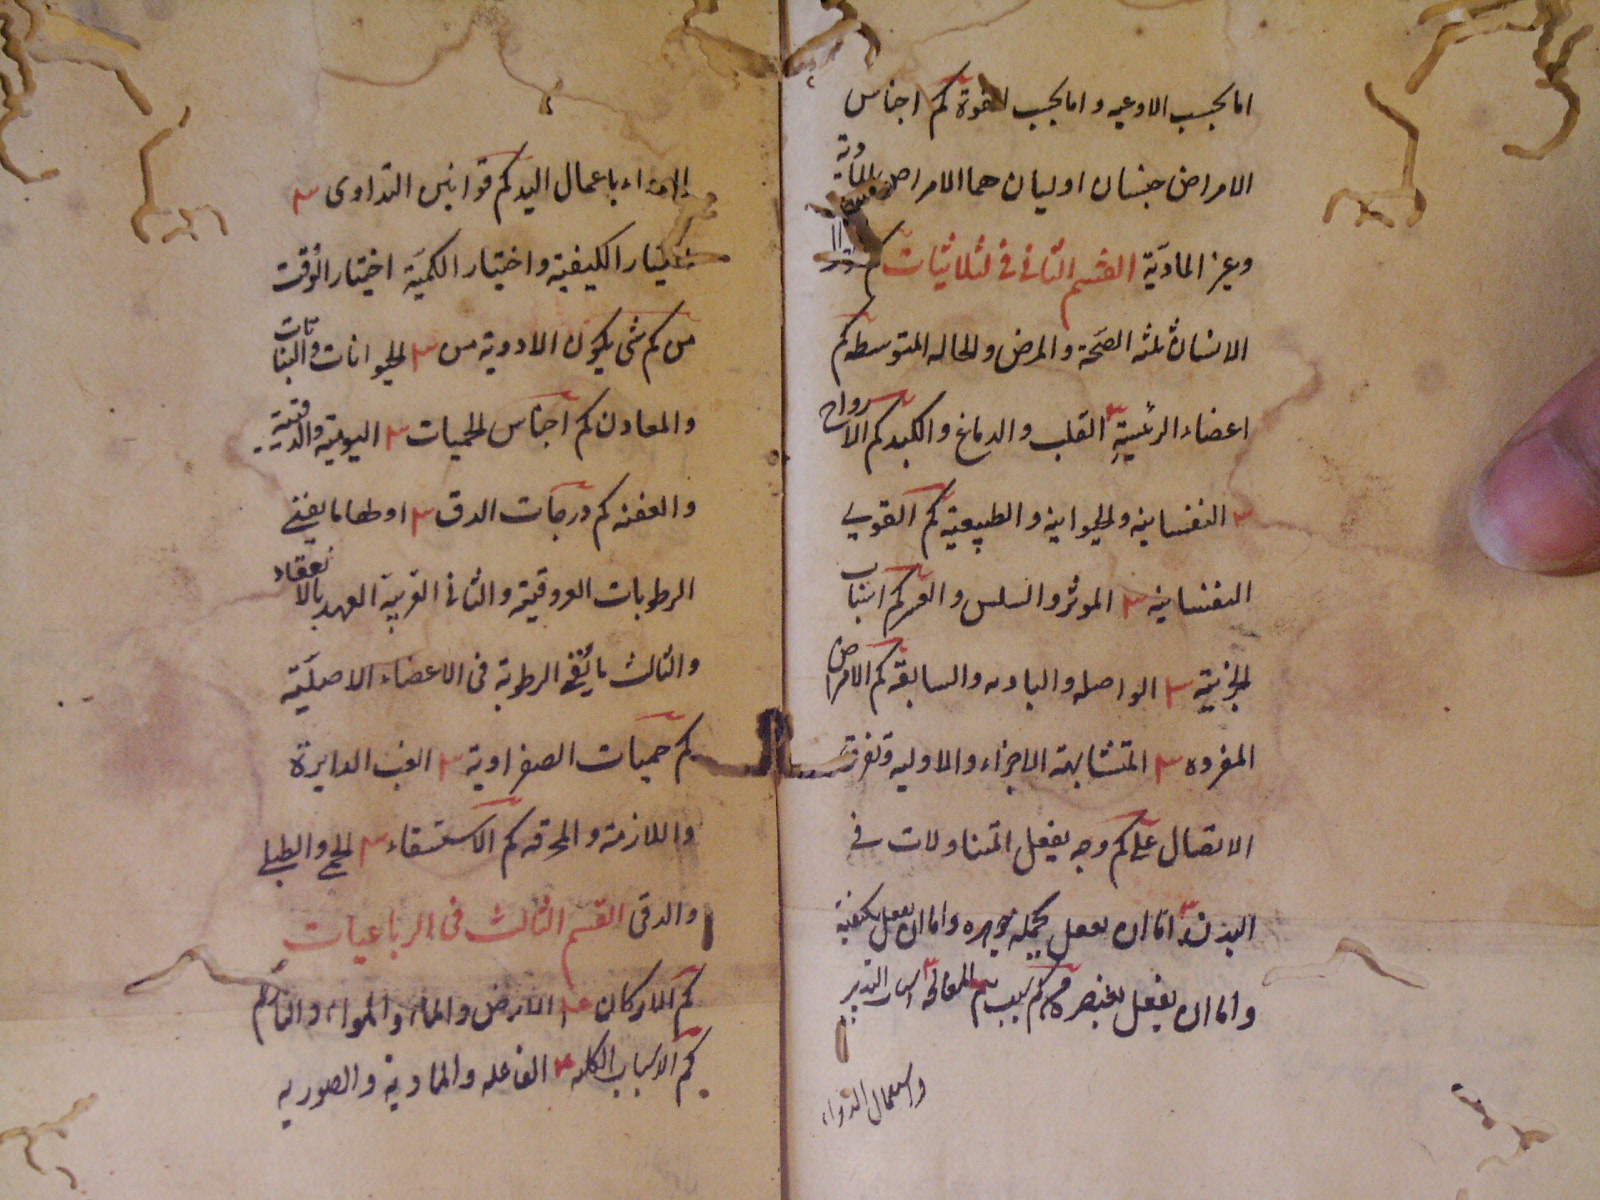 اما بحسب الاوعيه و اما بحسب القوة كم اجناس
الامراض جنسان اوليان هما الامراض المادية
وغير المادية القسم الثاني في ثلاثيات كم
الانسان ثلثه الصحة والمرض والحاله المتوسطه كم
اعضاء الرئيسية ٣ القلب والدماغ والكبد كم الارواح
٣ النفسانيه والحيوانيه والطبيعية كم القوي
النفسانيه ٣ كم اسباب
الجزئية ٣ الواصله والباديه والسابقة كم الامراض
المفرده ٣ المتشابهة الاجزاء والاوليه وتفرق
الاتصال على كم وجه يفعل المتناولات في
البدن ٣ اما ان يفعل بجملة جوهره واما ان يفعل بكيفية
واما ان يفعل بعنصره كم المعالجة ٣ التدبير
واستعمال الدواء
باعمال اليد كم قوانين التداوى ٣
اختيار الكيفية واختيار الكمية اختيار الوقت
من كم شى يكون الادوية من ٣ الحيوانات والنباتات
والمعادن كم اجناس الحميات ٣ اليومية والدقية
والعفنه كم درجات الدق ٣ اولها ما يفنى
الرطوبات العروقية والثانى القريبة العهد بالانعقاد
والثالث ما يفنى الرطوبة فى الاعضاء الاصلية
كم حميات الصفراوية ٣ الغب الدايرة
واللازمة والمحرقه كم الاستسقاء ٣ لحمى والطبلى
والدقى القسم الثالث فى الرباعيات
كم الاركان ٤ الارض والماء والهواء والنار
كم الاسباب الكليه ٤ الفاعله والمادية والصوريه